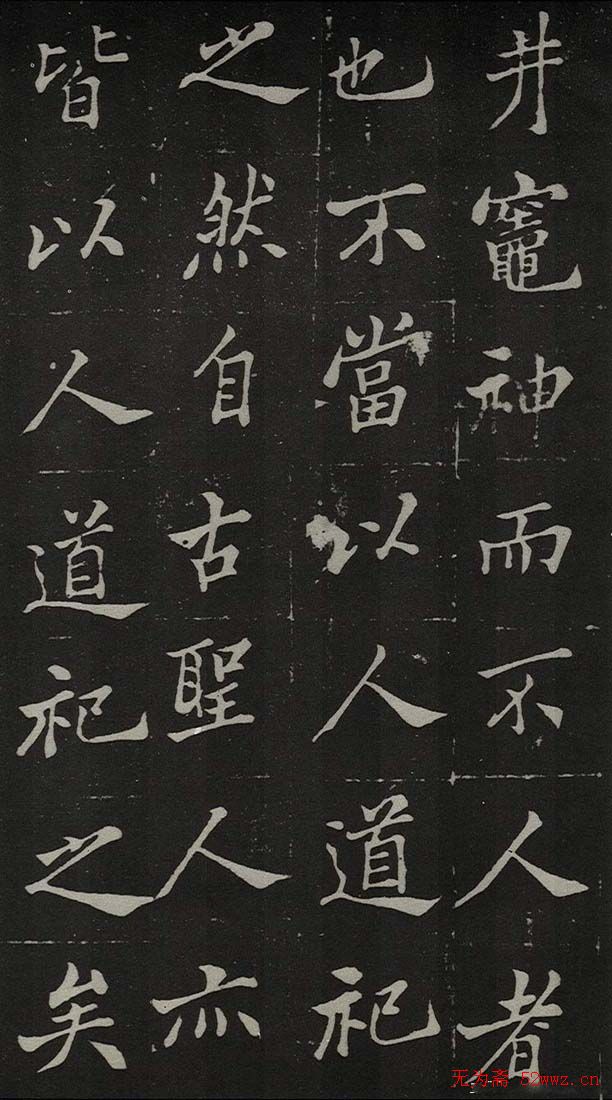 井竈神而不人者
也不當以人道祀
之然自古聖人亦
皆以人道祀之矣
无为斋 52wwz.cn